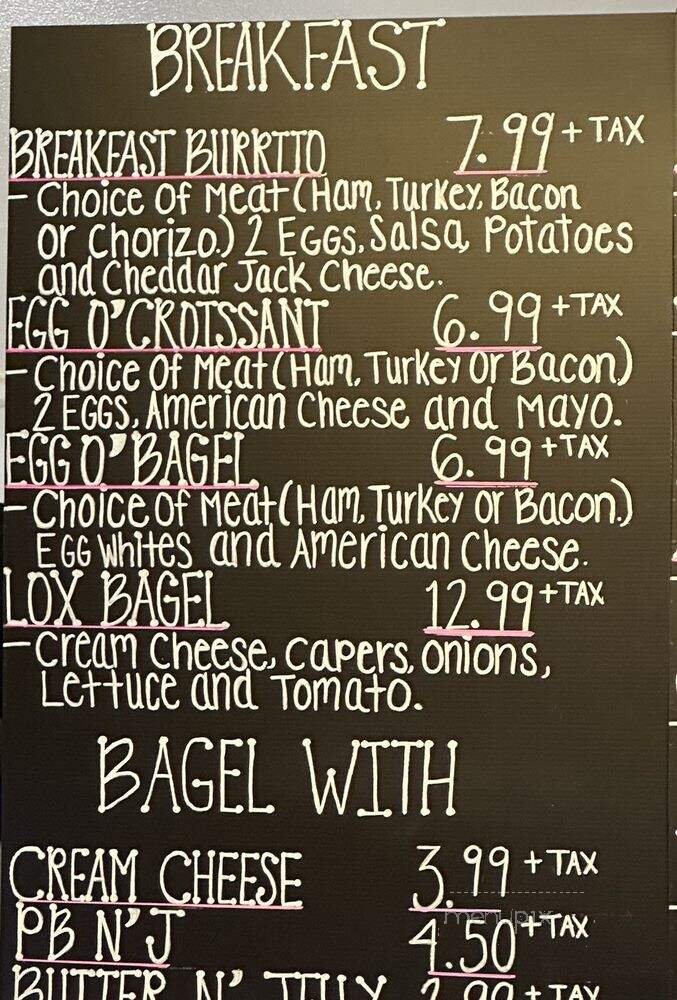 BREAKFAST
BREAKFAST BURRITO 7.99 + TAX
- Choice of Meat (Ham, Turkey, Bacon
or Chorizo.) 2 Eggs, Salsa, Potatoes
and Cheddar Jack Cheese.
EGG O'CROISSANT 6.99 + TAX
- Choice of Meat (Ham, Turkey or Bacon.)
2 EGGS, American Cheese and Mayo.
EGG O'BAGEL 6.99 + TAX
- Choice of Meat (Ham, Turkey or Bacon.)
Egg Whites and American Cheese.
LOX BAGEL 12.99 + TAX
- Cream Cheese, Capers, Onions,
Lettuce and Tomato.
BAGEL WITH
CREAM CHEESE 3.99 + TAX
menupix
PB N'J 4.50 + TAX
BUTTER N' JELLY 2.99 + TAX